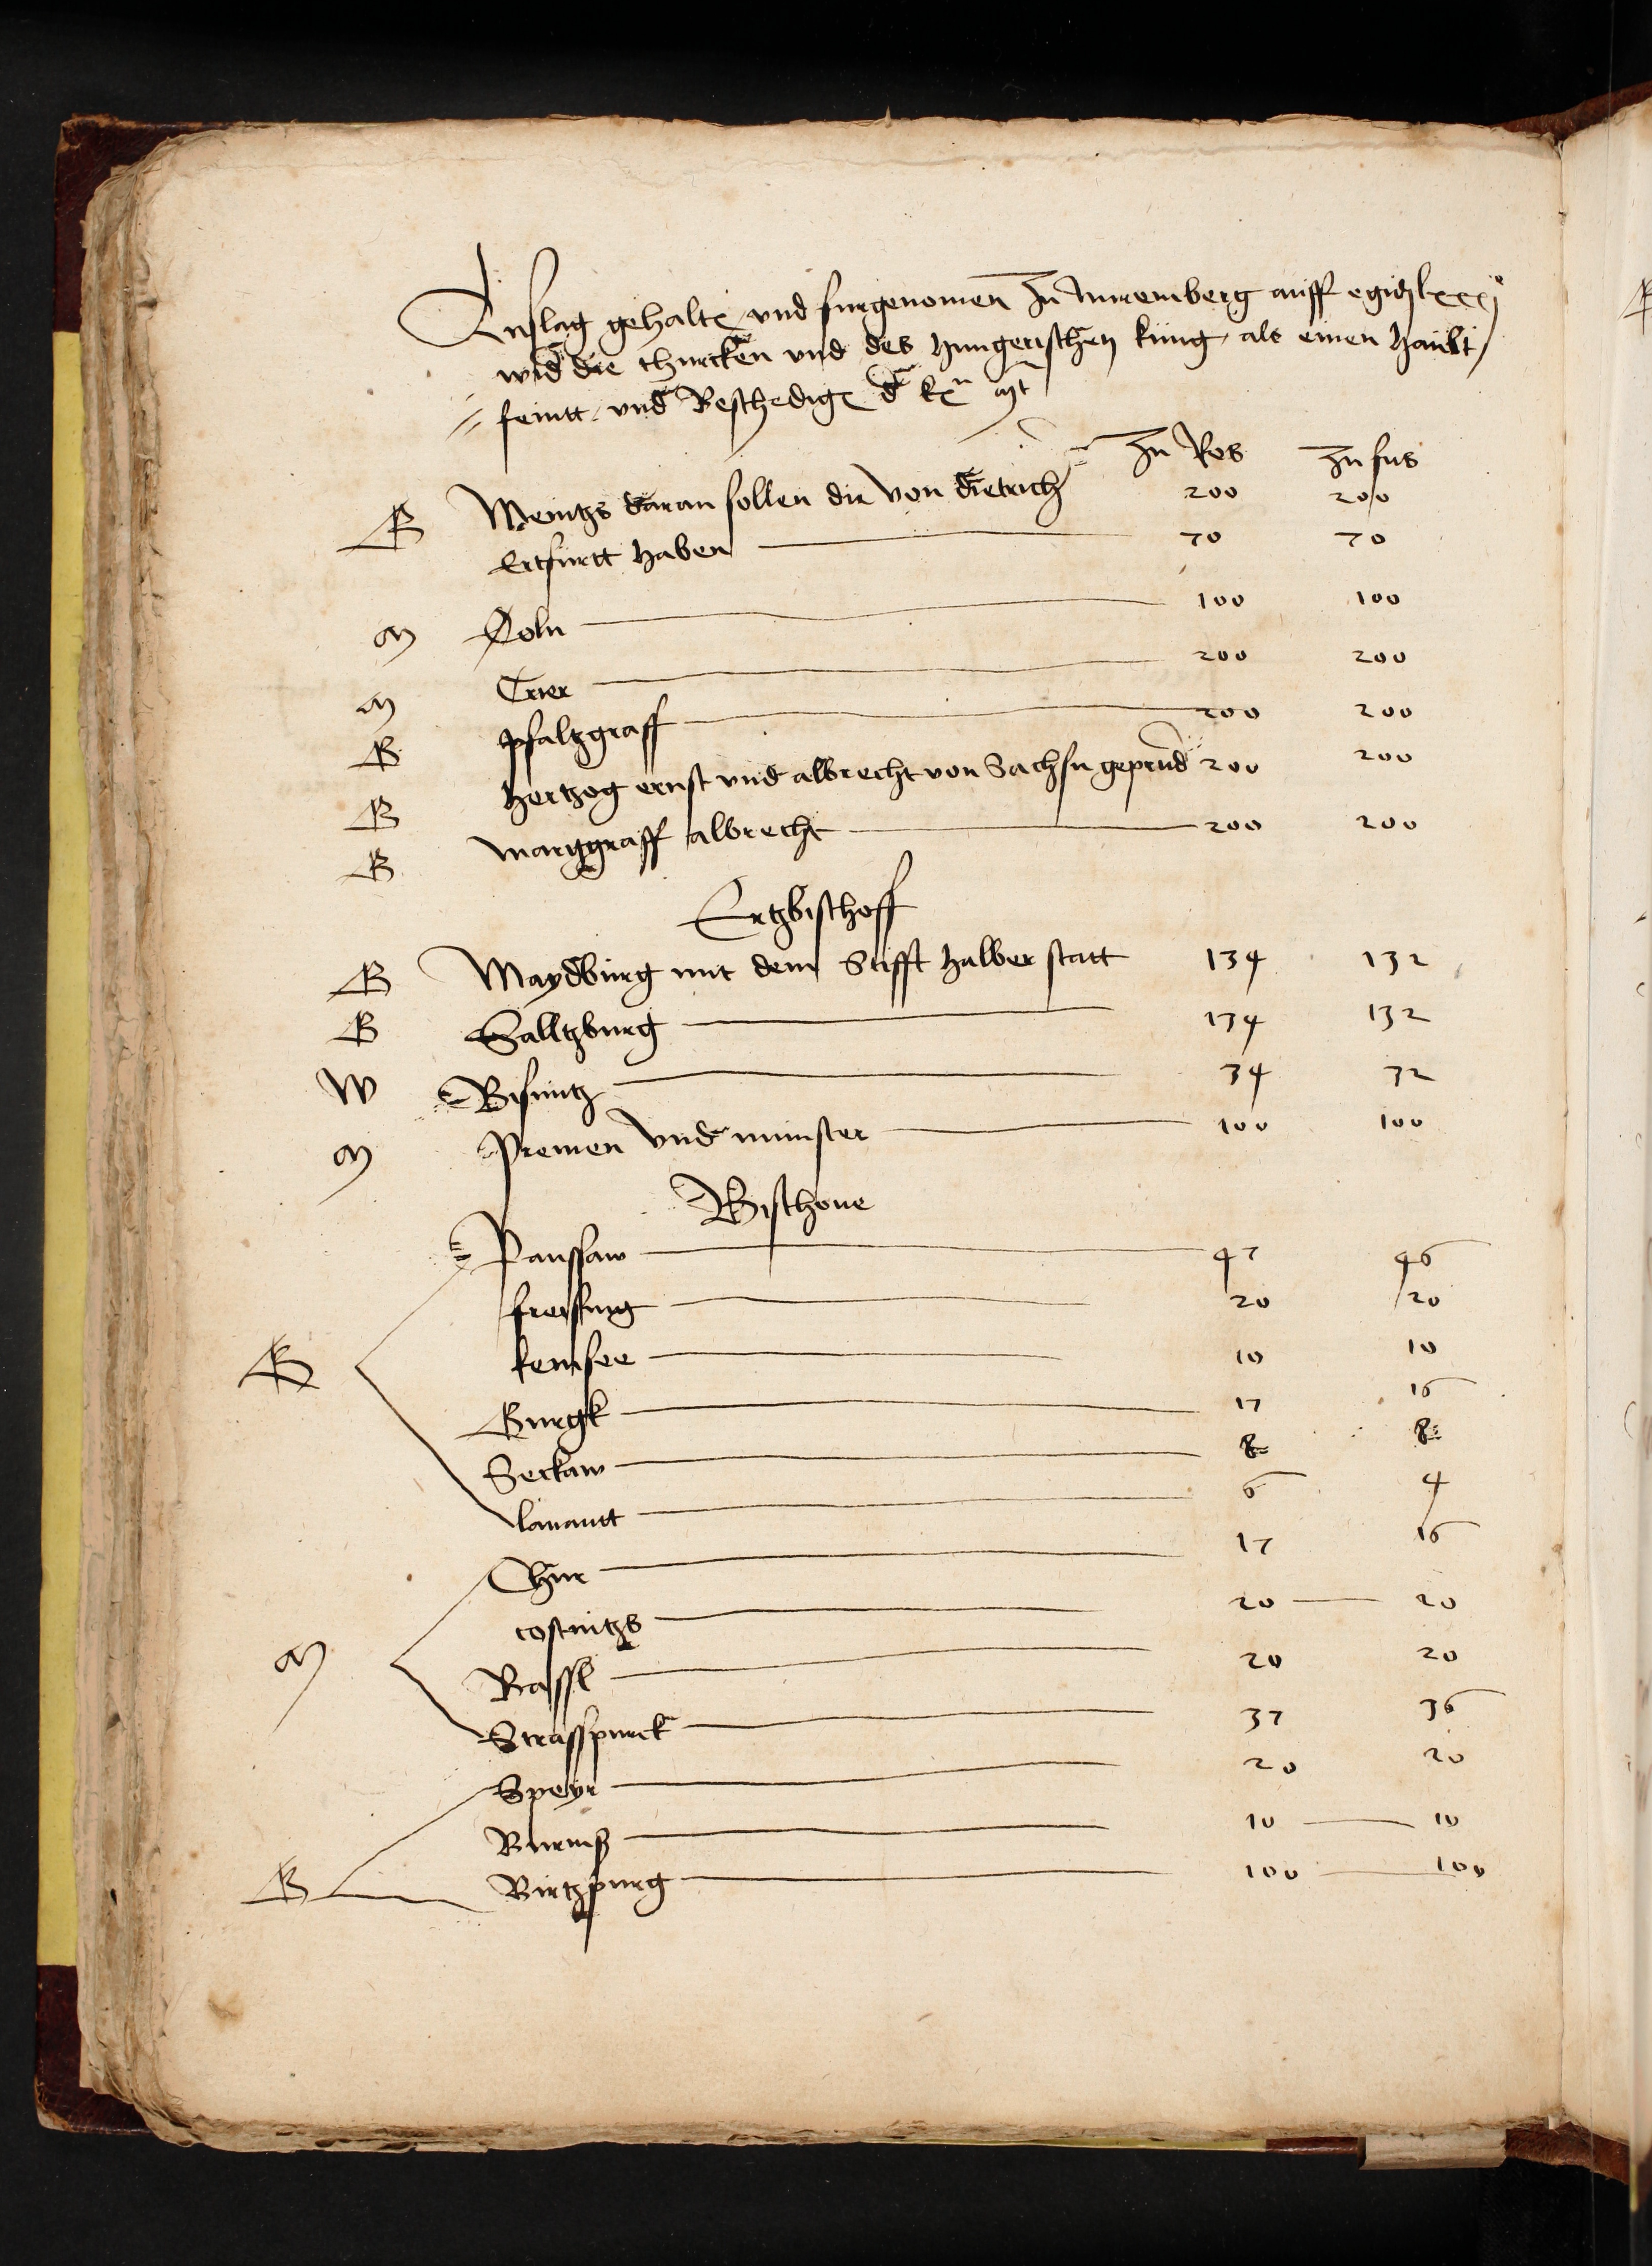 Anslag gehalten vnd furgenomen Zu Nuremberg auff egidij lxxxjº
wid die thurcken vnd des Hungerischen kung als einen Haubt
feintt vnd Beschediger d kn mt
Zu Ros Zu fus
R Meintzs daran sollen die von dietrich 200 200
Ertfurtt haben 70 70
M Coln 100 100
M Trier 200 200
R pfaltzgraff 200 200
R Hertzog ernst vnd albrecht von Sachsn geprud 200 200
R marggraff albrecht 200 200
Ertzbischoff
R Maydburg mit dem Stifft halberstatt 134 132
R Salltzburg 134 132
W Bisuntz 34 32
M Premen vnd munster 100 100
Bischoue
Panssaw 47 46
freissing 20 20
R kemsee 10 10
Gurgk 17 16
Seckaw 8 8
lauantt 6 4
Chur 17 16
costnitzs 20 20
M Bassl 20 20
Strasspurck 37 36
Speyr 20 20
Wurmß 10 10
R Wirtzpurg 100 100